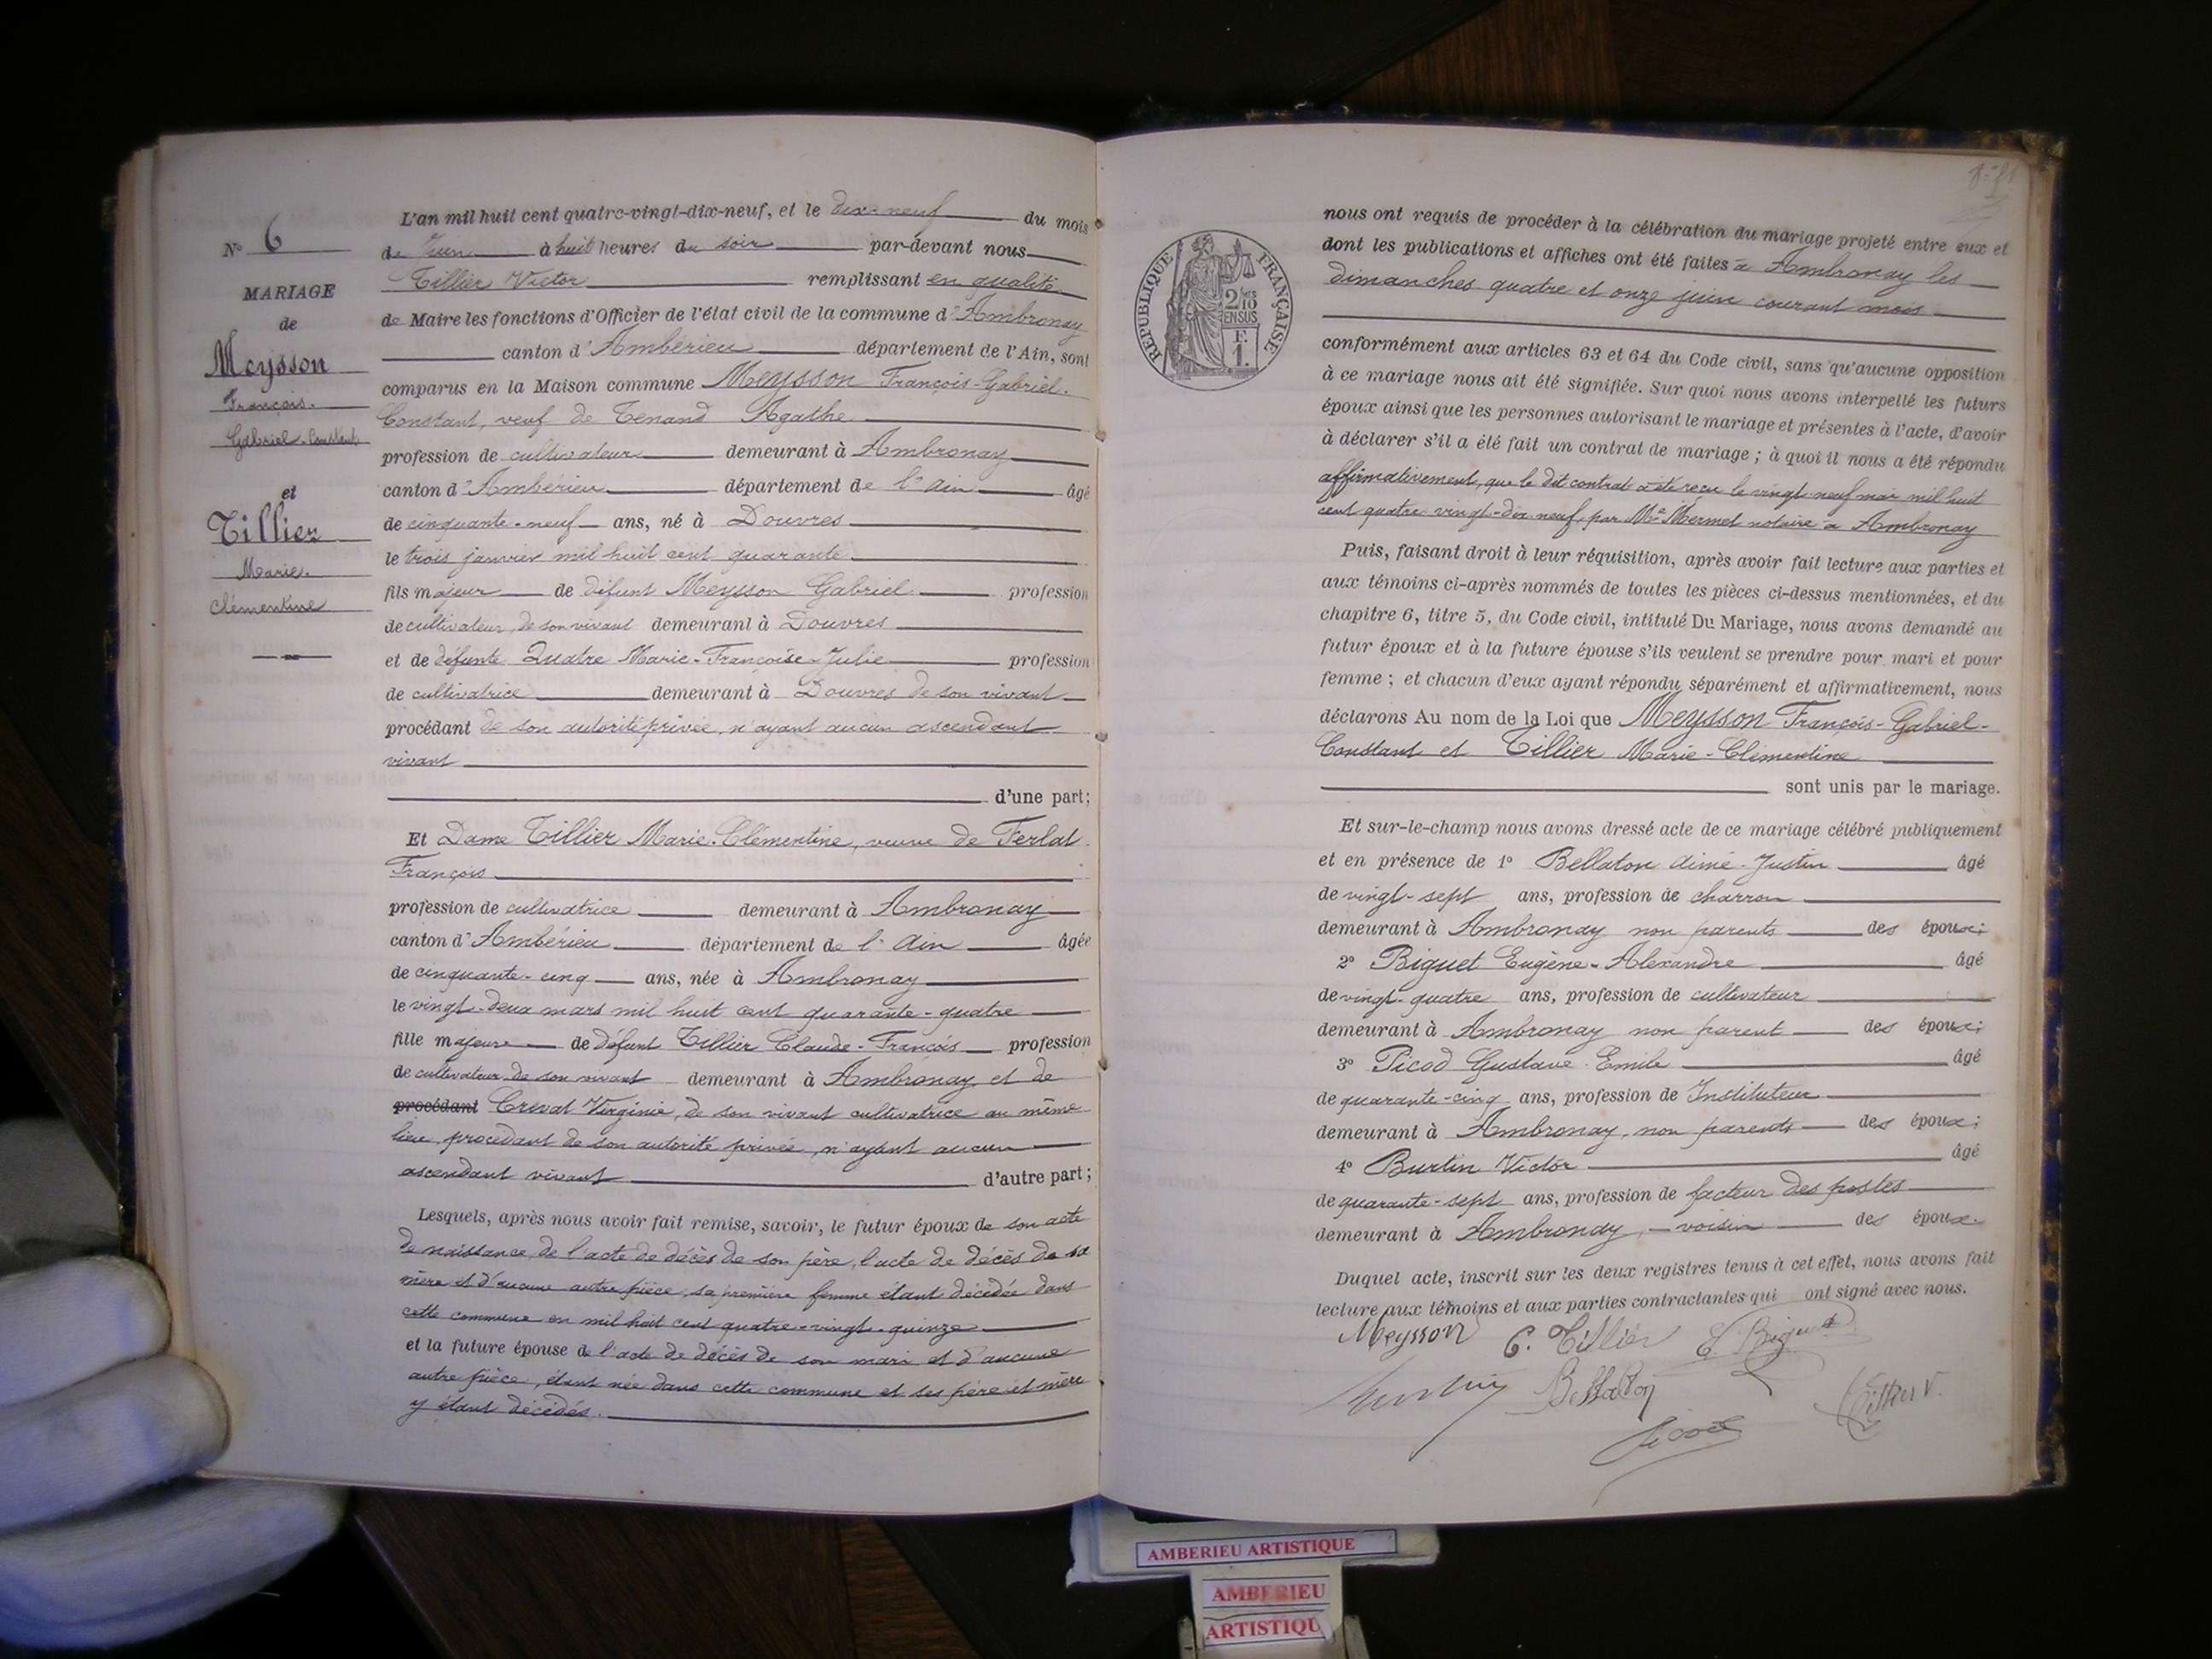 N° 6
MARIAGE
de
Meysson
François.
Gabriel-Constant
et
Tillier
Marie.
Clémentine
L'an mil huit cent quatre-vingt-dix-neuf, et le dix-neuf du mois
de Juin à huit heures du soir par-devant nous
Tillier Victor remplissant en qualité
de Maire les fonctions d'Officier de l'état civil de la commune d'Ambronay
canton d'Ambérieu département de l'Ain, sont
comparus en la Maison commune Meysson François-Gabriel-
Constant, veuf de Tenand Agathe
profession de cultivateur demeurant à Ambronay
canton d'Ambérieu département de l'Ain âgé
de cinquante-neuf ans, né à Douvres
le trois janvier mil huit cent quarante
fils majeur de défunt Meysson Gabriel profession
de cultivateur, de son vivant demeurant à Douvres
et de défunte Quatre Marie-Françoise-Julie profession
de cultivatrice demeurant à Douvres de son vivant
procédant de son autorité privée, n'ayant aucun ascendant
vivant
d'une part;
Et Dame Tillier Marie-Clémentine, veuve de Ferlat
François
profession de cultivatrice demeurant à Ambronay
canton d'Ambérieu département de l'Ain âgée
de cinquante-cinq ans, née à Ambronay
le vingt-deux mars mil huit cent quarante-quatre
fille majeure de défunt Tillier Claude-François profession
de cultivateur de son vivant demeurant à Ambronay et de
procédant Creval Virginie, de son vivant cultivatrice au même
lieu, procédant de son autorité privée, n'ayant aucun
ascendant vivant d'autre part;
Lesquels, après nous avoir fait remise, savoir, le futur époux de son acte
de naissance, de l'acte de décès de son père, l'acte de décès de sa
mère et d'aucune autre pièce, sa première femme étant décédée dans
cette commune en mil huit cent quatre-vingt-quinze
et la future épouse de l'acte de décès de son mari et d'aucune
autre pièce, étant née dans cette commune et ses père et mère
y étant décédés.
RÉPUBLIQUE FRANÇAISE
2/10
EN SUS
F.
1.
nous ont requis de procéder à la célébration du mariage projeté entre eux et
dont les publications et affiches ont été faites à Ambronay les
dimanches quatre et onze juin courant mois
conformément aux articles 63 et 64 du Code civil, sans qu'aucune opposition
à ce mariage nous ait été signifiée. Sur quoi nous avons interpellé les futurs
époux ainsi que les personnes autorisant le mariage et présentes à l'acte, d'avoir
à déclarer s'il a été fait un contrat de mariage ; à quoi il nous a été répondu
affirmativement, que le dit contrat a été reçu le vingt-neuf mai mil huit
cent quatre-vingt-dix neuf, par Me Mermet notaire à Ambronay
Puis, faisant droit à leur réquisition, après avoir fait lecture aux parties et
aux témoins ci-après nommés de toutes les pièces ci-dessus mentionnées, et du
chapitre 6, titre 5, du Code civil, intitulé Du Mariage, nous avons demandé au
futur époux et à la future épouse s'ils veulent se prendre pour mari et pour
femme ; et chacun d'eux ayant répondu séparément et affirmativement, nous
déclarons Au nom de la Loi que Meysson François-Gabriel-
Constant et Tillier Marie-Clémentine
sont unis par le mariage.
Et sur-le-champ nous avons dressé acte de ce mariage célébré publiquement
et en présence de 1° Bellaton Aimé-Justin âgé
de vingt-sept ans, profession de charron
demeurant à Ambronay non parents des époux;
2° Biguet Eugène-Alexandre âgé
de vingt-quatre ans, profession de cultivateur
demeurant à Ambronay non parent des époux;
3° Picod Gustave-Emile âgé
de quarante-cinq ans, profession de Instituteur
demeurant à Ambronay, non parents des époux;
4° Burtin Victor âgé
de quarante-sept ans, profession de facteur des postes
demeurant à Ambronay, voisin des époux.
Duquel acte, inscrit sur les deux registres tenus à cet effet, nous avons fait
lecture aux témoins et aux parties contractantes qui ont signé avec nous.
Meysson C. Tillier E. Biguet
Burtin Bellaton Tillier V.
Picod
AMBERIEU ARTISTIQUE
AMBERIEU
ARTISTIQU